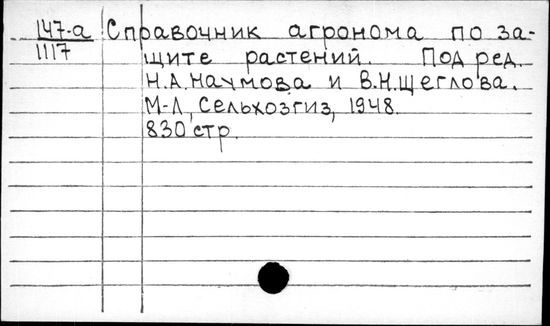 147-а Справочник агронома по за-
1117 щите растений. Под ред.
Н.А.Наумова и В.Н.Щеглова.
М-Л, Сельхозгиз, 1948.
830 стр.